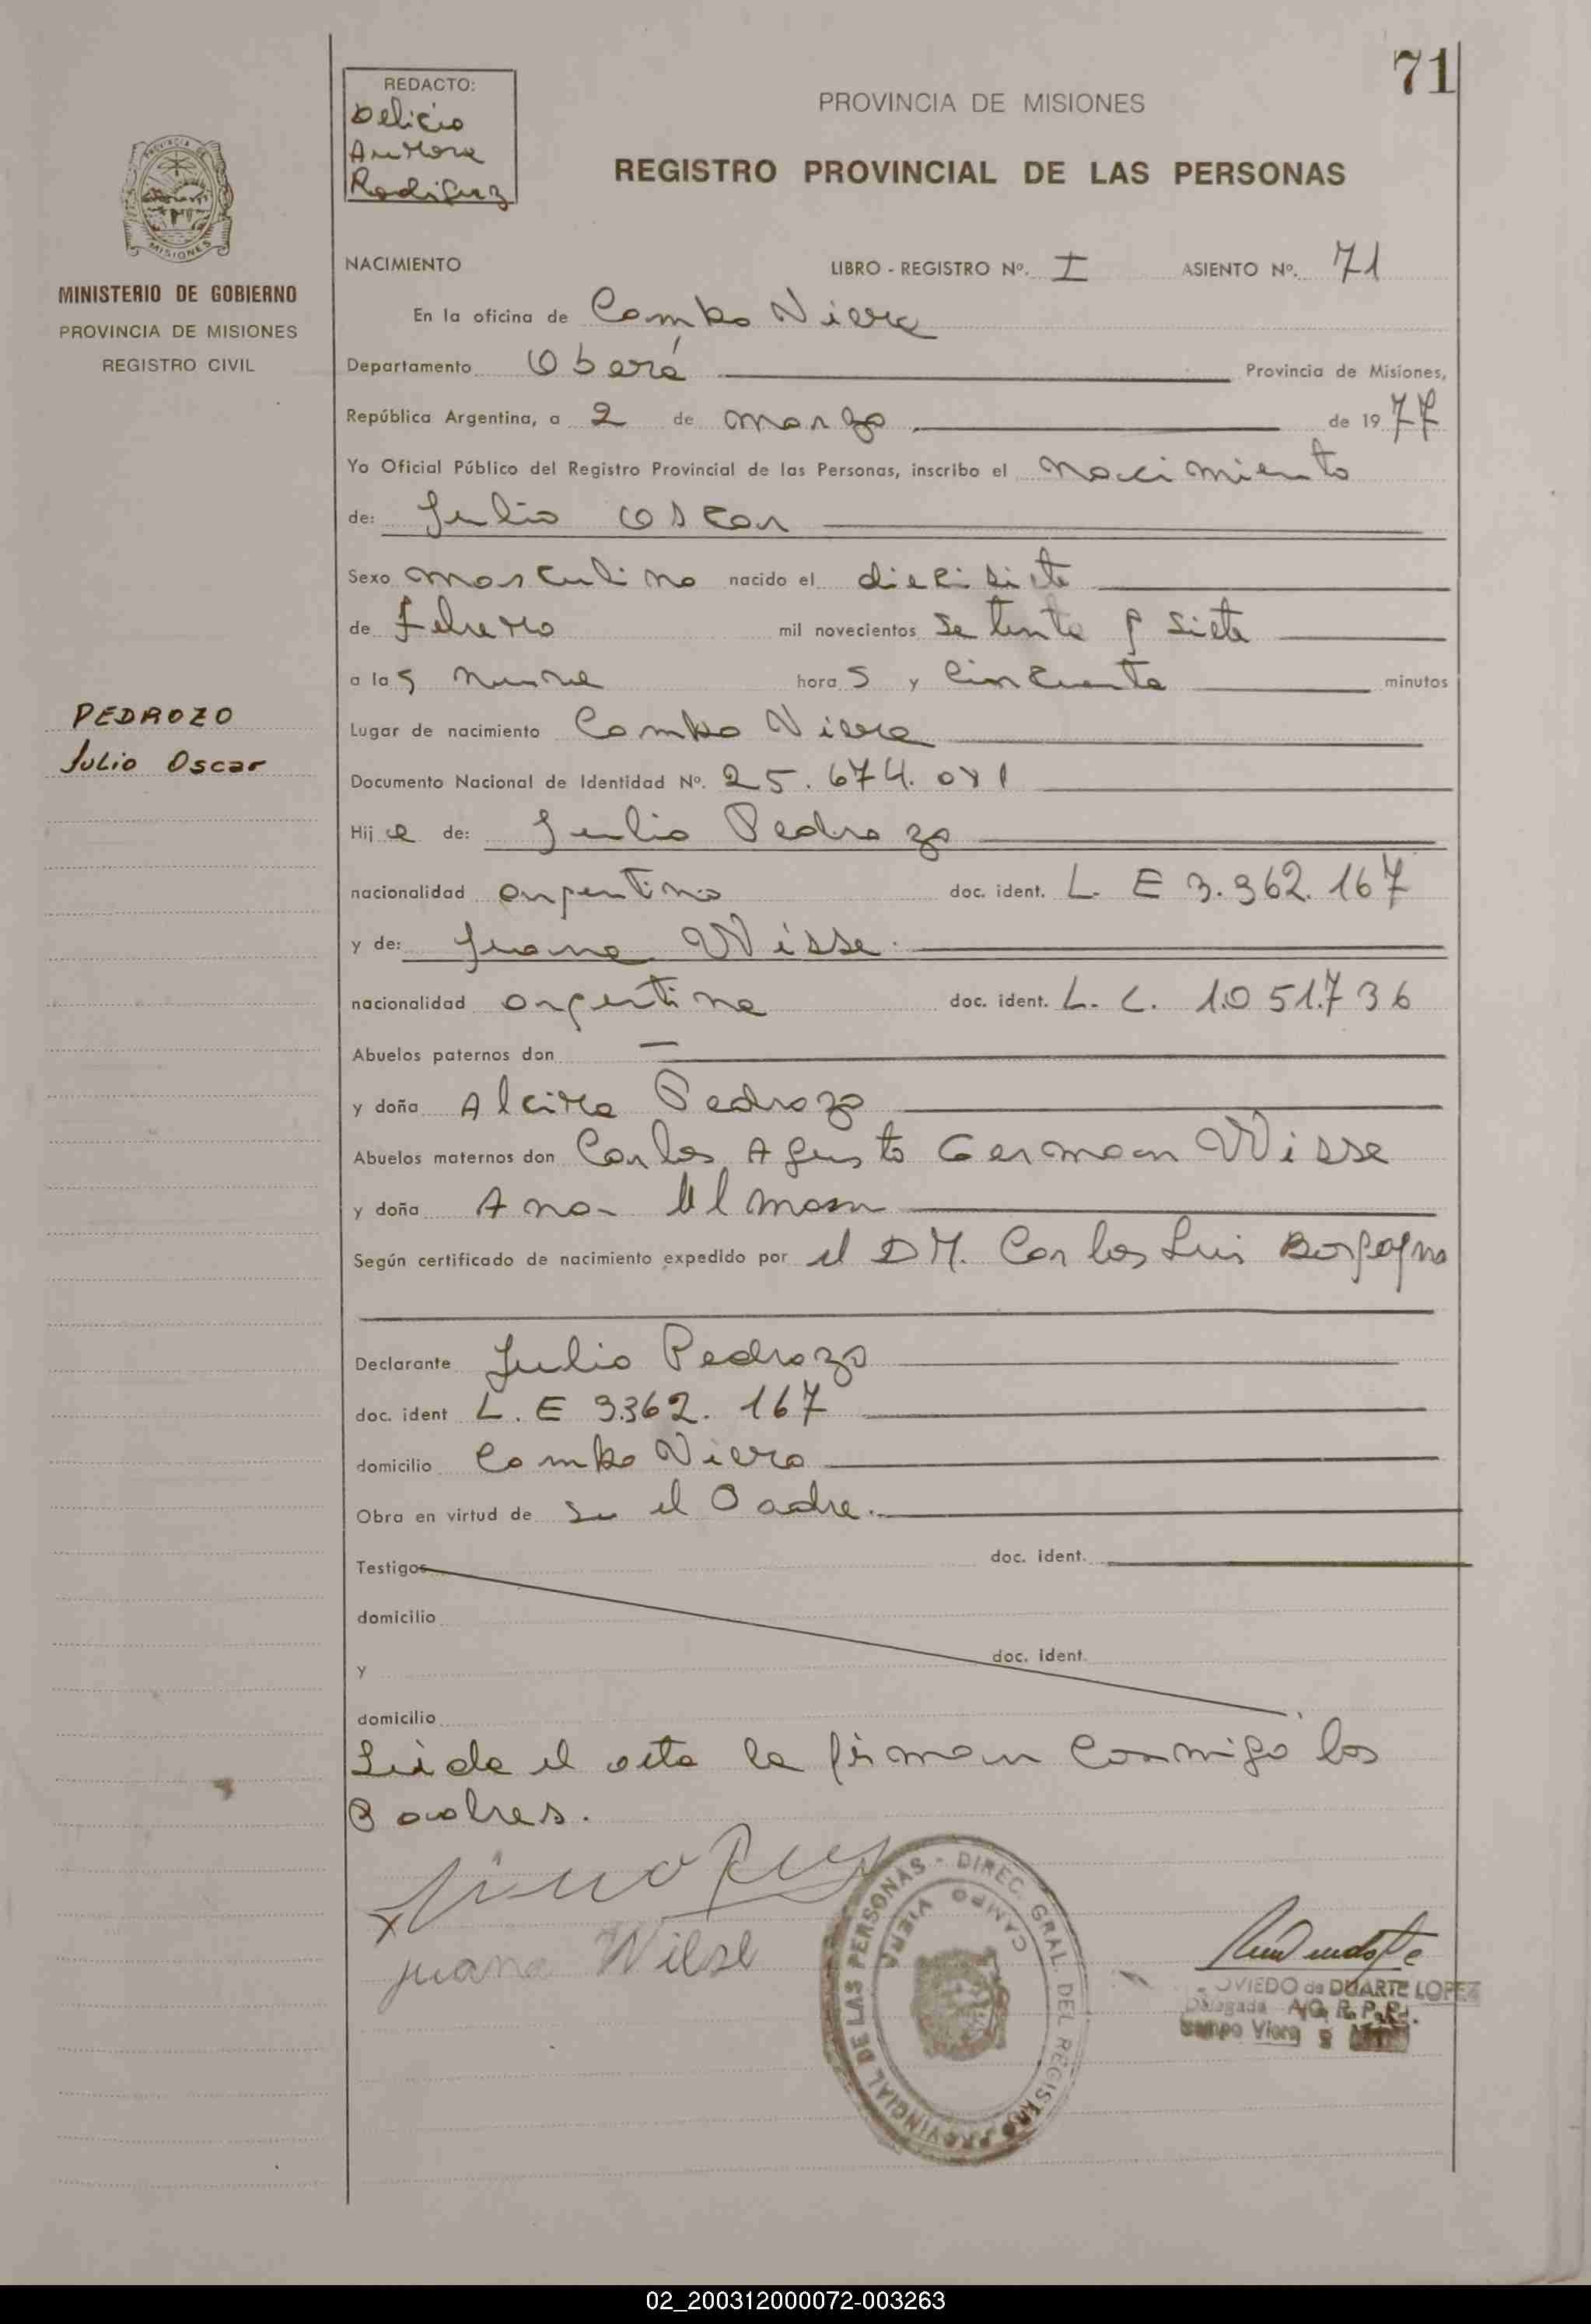 71
REDACTO:
Delicio
Aurora
PROVINCIA DE MISIONES
REGISTRO PROVINCIAL DE LAS PERSONAS
PROVINCIA DE MISIONES
MINISTERIO DE GOBIERNO
PROVINCIA DE MISIONES
REGISTRO CIVIL
NACIMIENTO LIBRO - REGISTRO Nº. I ASIENTO Nº. 71
En la oficina de Campo Viera
Departamento Oberá Provincia de Misiones,
República Argentina, a 2 de marzo de 1977
Yo Oficial Público del Registro Provincial de las Personas, inscribo el nacimiento
de: Julio Oscar
Sexo masculino nacido el diecisiete
de Febrero mil novecientos setenta y siete
a las nueve horas y cincuenta minutos
PEDROZO
Julio Oscar
Lugar de nacimiento Campo Viera
Documento Nacional de Identidad Nº. 25.674.081
Hijo de: Julio Pedrozo
nacionalidad argentino doc. ident. L. E 3.362.167
y de: Juana Wisse.
nacionalidad argentina doc. ident. L. C. 1.051.736
Abuelos paternos don —
y doña Alcira Pedrozo
Abuelos maternos don Carlos Agusto German Wisse
y doña Ana Ulman
Según certificado de nacimiento expedido por el DR. Carlos Luis Borgogno
Declarante Julio Pedrozo
doc. ident L. E 3.362.167
domicilio Campo Viera
Obra en virtud de su el Padre.
Testigos doc. ident.
domicilio
y doc. ident.
domicilio
Leida el acta la firman conmigo los
Padres.
juana Wilse
DIREC. GRAL. DEL REGISTRO PROVINCIAL DE LAS PERSONAS -
CAMPO VIERA
OVIEDO de DUARTE LOPEZ
Delegada A/C. R. P. P.
Campo Viera
02_200312000072-003263